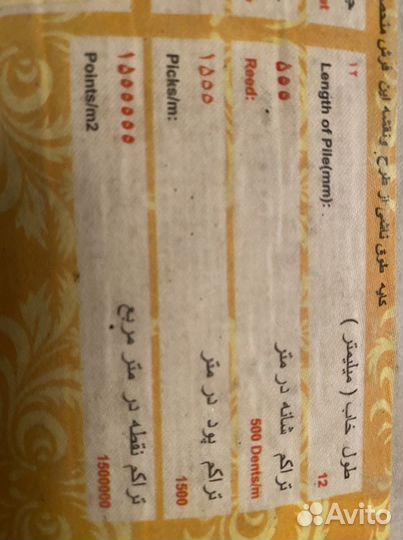 کلیه حقوق ناشی از طرح ونقشه این فرش
۱۲
Length of Pile(mm):
طول خاب ( میلیمتر )
12
۵۰۰
Reed:
تراکم شانه در متر
500 Dents/m
۱۵۰۰
Picks/m:
تراکم پود در متر
1500
۱۵۰۰۰۰۰
Points/m2
تراکم نقطه در متر مربع
1500000
Avito